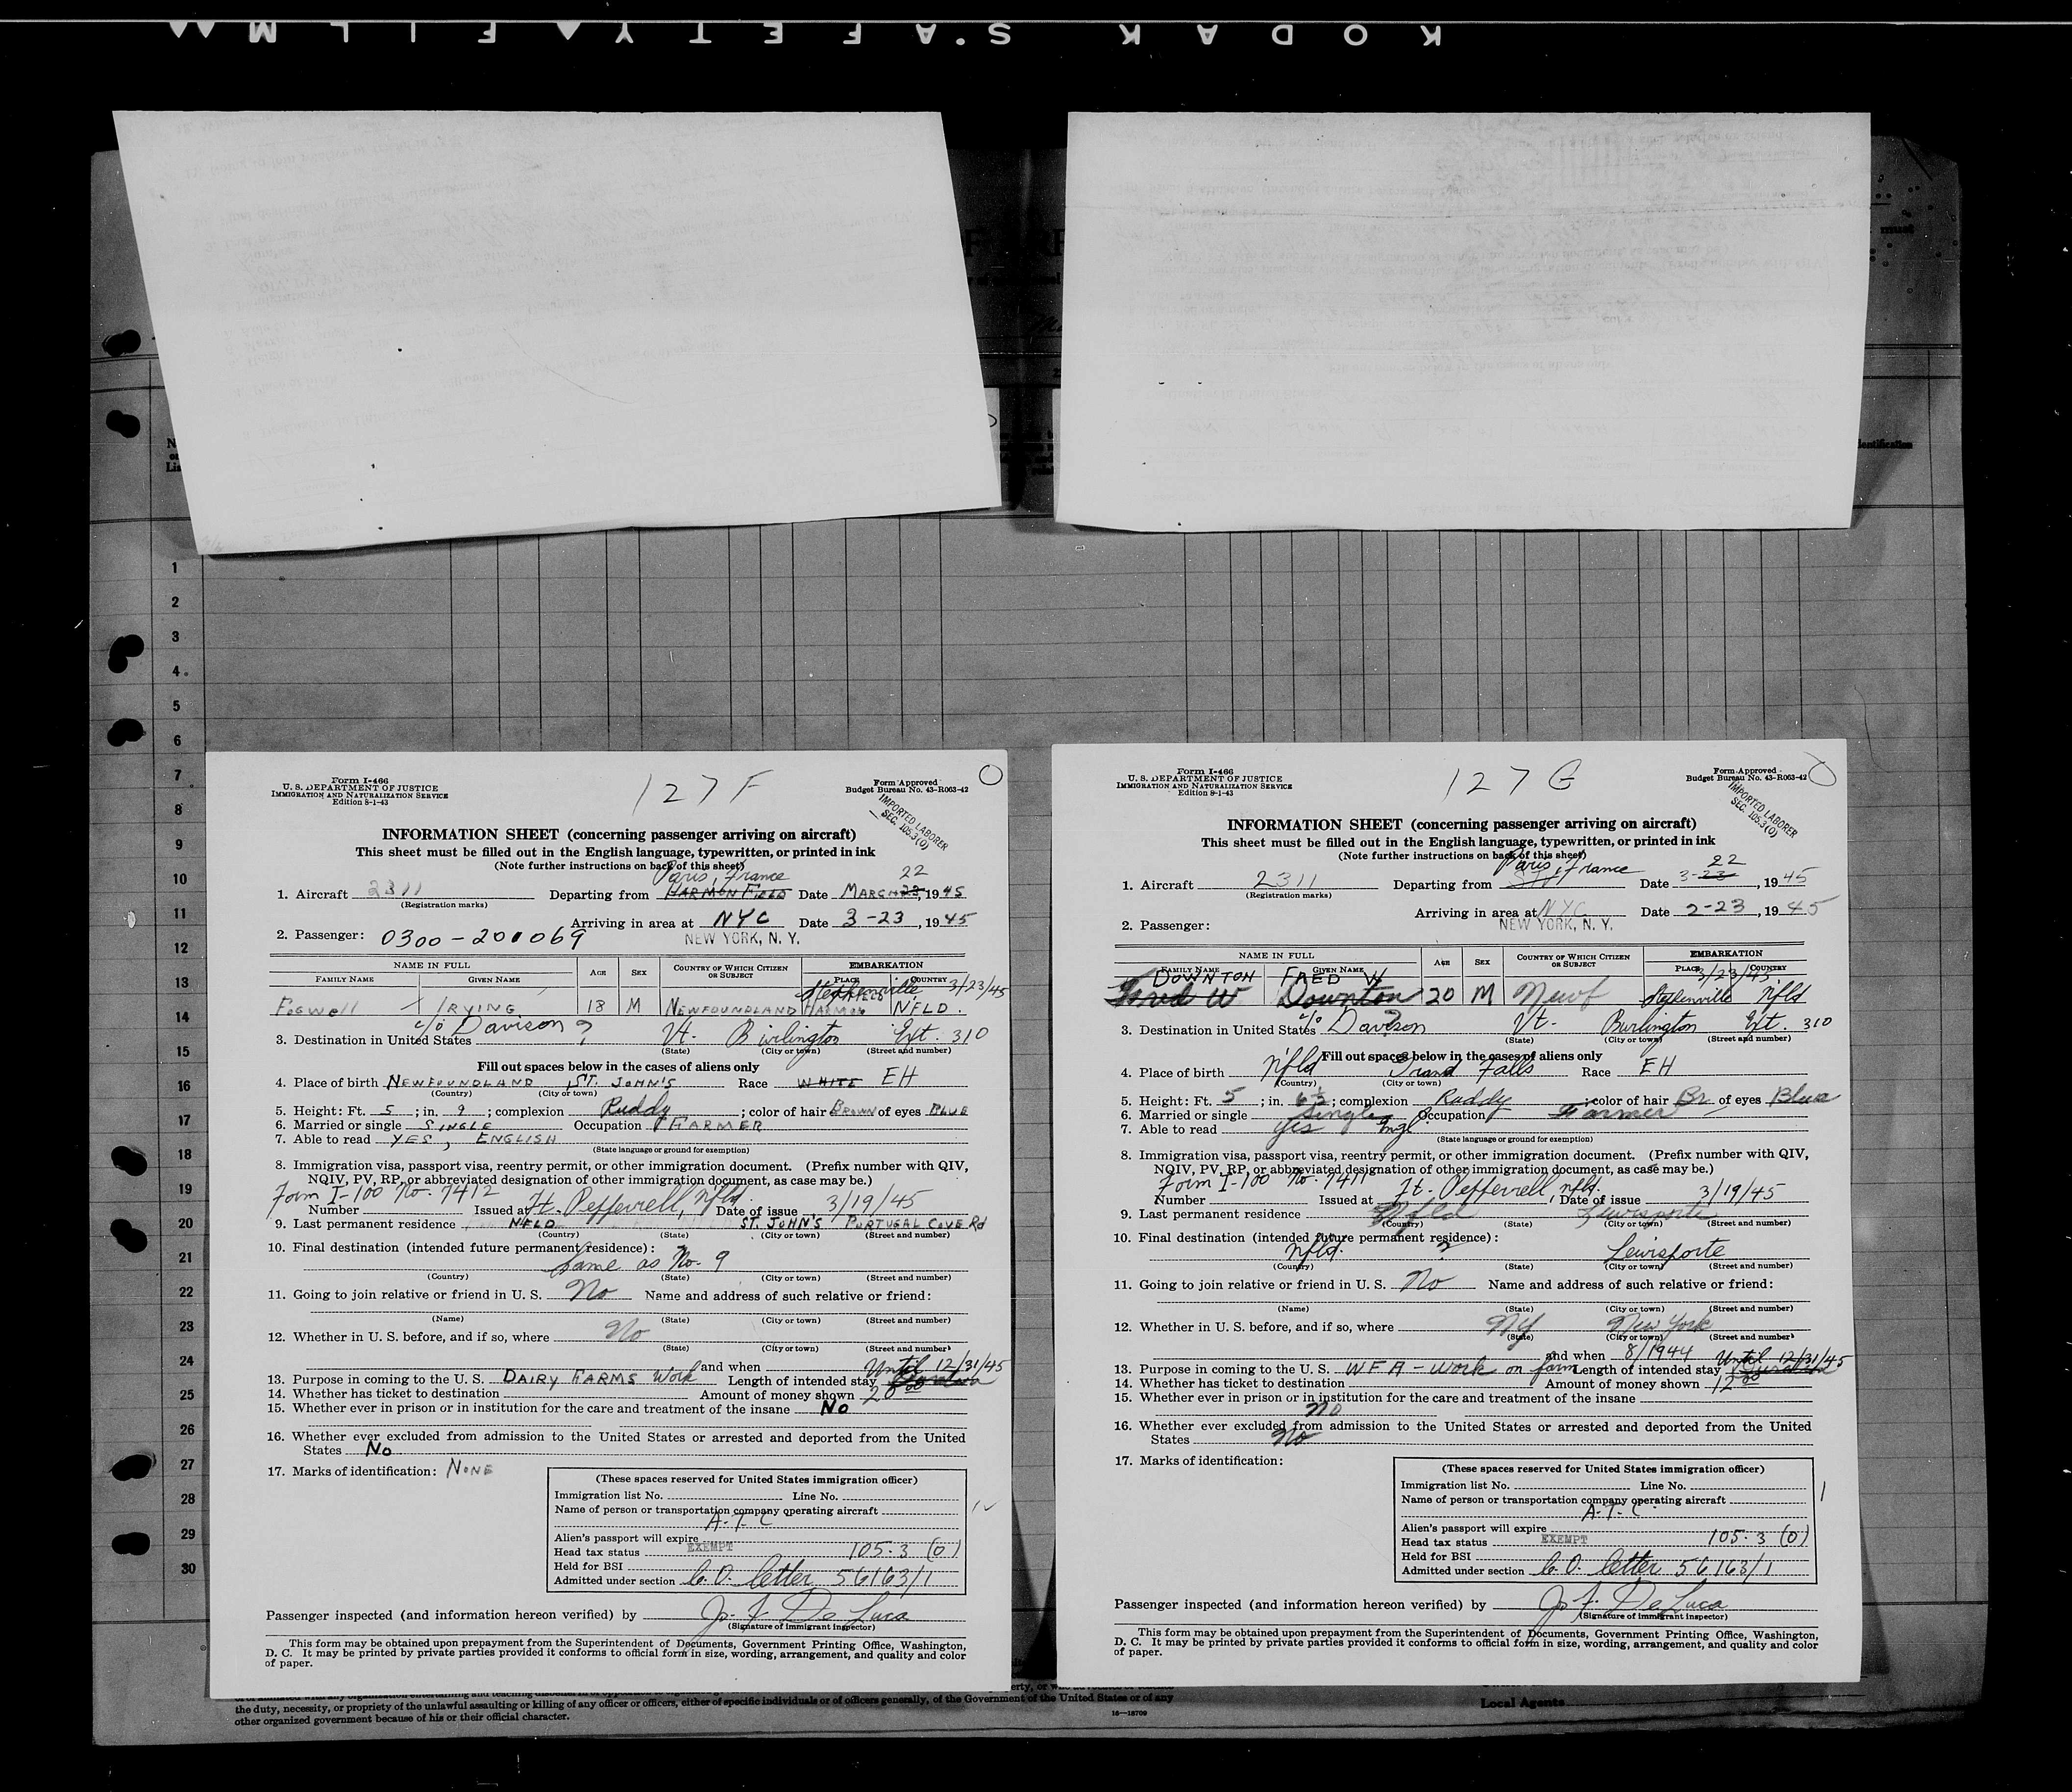 KODAK SAFETY FILM
1
2
3
4
5
6
7
8
9
10
11
12
13
14
15
16
17
18
19
20
21
22
23
24
25
26
27
28
29
30
Form I-466
U. S. DEPARTMENT OF JUSTICE
IMMIGRATION AND NATURALIZATION SERVICE
Edition 8-1-43
127 F
Form Approved
Budget Bureau No. 43-R063-42
IMPORTED LABORER
SEC. 105.3 (O)
INFORMATION SHEET (concerning passenger arriving on aircraft)
This sheet must be filled out in the English language, typewritten, or printed in ink
(Note further instructions on back of this sheet)
Paris, France 22
1. Aircraft 2311 Departing from HARMON FIELD Date MARCH 23, 1945
(Registration marks)
Arriving in area at NYC Date 3-23, 1945
2. Passenger: 0300-201069 NEW YORK, N. Y.
NAME IN FULL AGE SEX COUNTRY OF WHICH CITIZEN OR SUBJECT EMBARKATION
FAMILY NAME GIVEN NAME PLACE COUNTRY
Stephenville 3/23/45
IRVING 18 M NEWFOUNDLAND HARMON NFLD.
c/o Davison ?
3. Destination in United States Vt. Burlington Ext. 310
(State) (City or town) (Street and number)
Fill out spaces below in the cases of aliens only
4. Place of birth NEWFOUNDLAND ST. JOHN'S Race WHITE EH
(Country) (City or town)
5. Height: Ft. 5; in. 9; complexion Ruddy; color of hair BROWN of eyes BLUE
6. Married or single SINGLE Occupation FARMER
7. Able to read YES, ENGLISH
(State language or ground for exemption)
8. Immigration visa, passport visa, reentry permit, or other immigration document. (Prefix number with QIV,
NQIV, PV, RP, or abbreviated designation of other immigration document, as case may be.)
Form I-100 No. 7412
Number Issued at Ft. Pepperrell, Nfld. Date of issue 3/19/45
9. Last permanent residence NFLD ST. JOHN'S PORTUGAL COVE Rd
(Country) (State) (City or town) (Street and number)
10. Final destination (intended future permanent residence):
Same as No. 9
(Country) (State) (City or town) (Street and number)
11. Going to join relative or friend in U. S. No Name and address of such relative or friend:
(Name) (State) (City or town) (Street and number)
12. Whether in U. S. before, and if so, where No
(State) (City or town) (Street and number)
and when
Until 12/31/45
13. Purpose in coming to the U. S. DAIRY FARMS Work Length of intended stay Duration
14. Whether has ticket to destination Amount of money shown 20.00
15. Whether ever in prison or in institution for the care and treatment of the insane No
16. Whether ever excluded from admission to the United States or arrested and deported from the United
States No
17. Marks of identification: NONE
(These spaces reserved for United States immigration officer)
Immigration list No. Line No.
Name of person or transportation company operating aircraft
A.T.C
Alien's passport will expire
Head tax status EXEMPT 105.3 (O)
Held for BSI
Admitted under section C.O. letter 56163/1
Passenger inspected (and information hereon verified) by J. F. De Luca
(Signature of immigrant inspector)
This form may be obtained upon prepayment from the Superintendent of Documents, Government Printing Office, Washington,
D. C. It may be printed by private parties provided it conforms to official form in size, wording, arrangement, and quality and color
of paper.
Form I-466
U. S. DEPARTMENT OF JUSTICE
IMMIGRATION AND NATURALIZATION SERVICE
Edition 8-1-43
127 G
Form Approved
Budget Bureau No. 43-R063-42
IMPORTED LABORER
SEC. 105.3 (O)
INFORMATION SHEET (concerning passenger arriving on aircraft)
This sheet must be filled out in the English language, typewritten, or printed in ink
(Note further instructions on back of this sheet)
Paris, France 22
1. Aircraft 2311 Departing from Date 3-23, 1945
(Registration marks)
Arriving in area at NYC Date 2-23, 1945
2. Passenger: NEW YORK, N. Y.
NAME IN FULL AGE SEX COUNTRY OF WHICH CITIZEN OR SUBJECT EMBARKATION
FAMILY NAME GIVEN NAME PLACE COUNTRY
DOWNTON FRED W 3/23/45
Fred W Downton 20 M Newf Stephenville Nfld
3. Destination in United States c/o Davison ? Vt. Burlington Ext. 310
(State) (City or town) (Street and number)
Fill out spaces below in the cases of aliens only
4. Place of birth Nfld Grand Falls Race EH
(Country) (City or town)
5. Height: Ft. 5; in. 6½; complexion Ruddy; color of hair Br. of eyes Blue
6. Married or single Single Occupation Farmer
7. Able to read yes Engl.
(State language or ground for exemption)
8. Immigration visa, passport visa, reentry permit, or other immigration document. (Prefix number with QIV,
NQIV, PV, RP, or abbreviated designation of other immigration document, as case may be.)
Form I-100 No. 7411
Number Issued at Ft. Pepperrell, Nfld. Date of issue 3/19/45
9. Last permanent residence Nfld Lewisporte
(Country) (State) (City or town) (Street and number)
10. Final destination (intended future permanent residence):
Nfld. ? Lewisporte
(Country) (State) (City or town) (Street and number)
11. Going to join relative or friend in U. S. No Name and address of such relative or friend:
(Name) (State) (City or town) (Street and number)
12. Whether in U. S. before, and if so, where NY New York
(State) (City or town) (Street and number)
and when 8/1944 Until 12/31/45
13. Purpose in coming to the U. S. WFA - work on farm Length of intended stay Duration
14. Whether has ticket to destination Amount of money shown 12.00
15. Whether ever in prison or in institution for the care and treatment of the insane
No
16. Whether ever excluded from admission to the United States or arrested and deported from the United
States No
17. Marks of identification:
(These spaces reserved for United States immigration officer)
Immigration list No. Line No.
Name of person or transportation company operating aircraft
A.T.C.
Alien's passport will expire
Head tax status EXEMPT 105.3 (O)
Held for BSI
Admitted under section C.O. letter 56163/1
Passenger inspected (and information hereon verified) by J. F. De Luca
(Signature of immigrant inspector)
This form may be obtained upon prepayment from the Superintendent of Documents, Government Printing Office, Washington,
D. C. It may be printed by private parties provided it conforms to official form in size, wording, arrangement, and quality and color
of paper.
the duty, necessity, or propriety of the unlawful assaulting or killing of any officer or officers, either of specific individuals or of officers generally, of the Government of the United States or of any
other organized government because of his or their official character.
16—18709
Local Agents